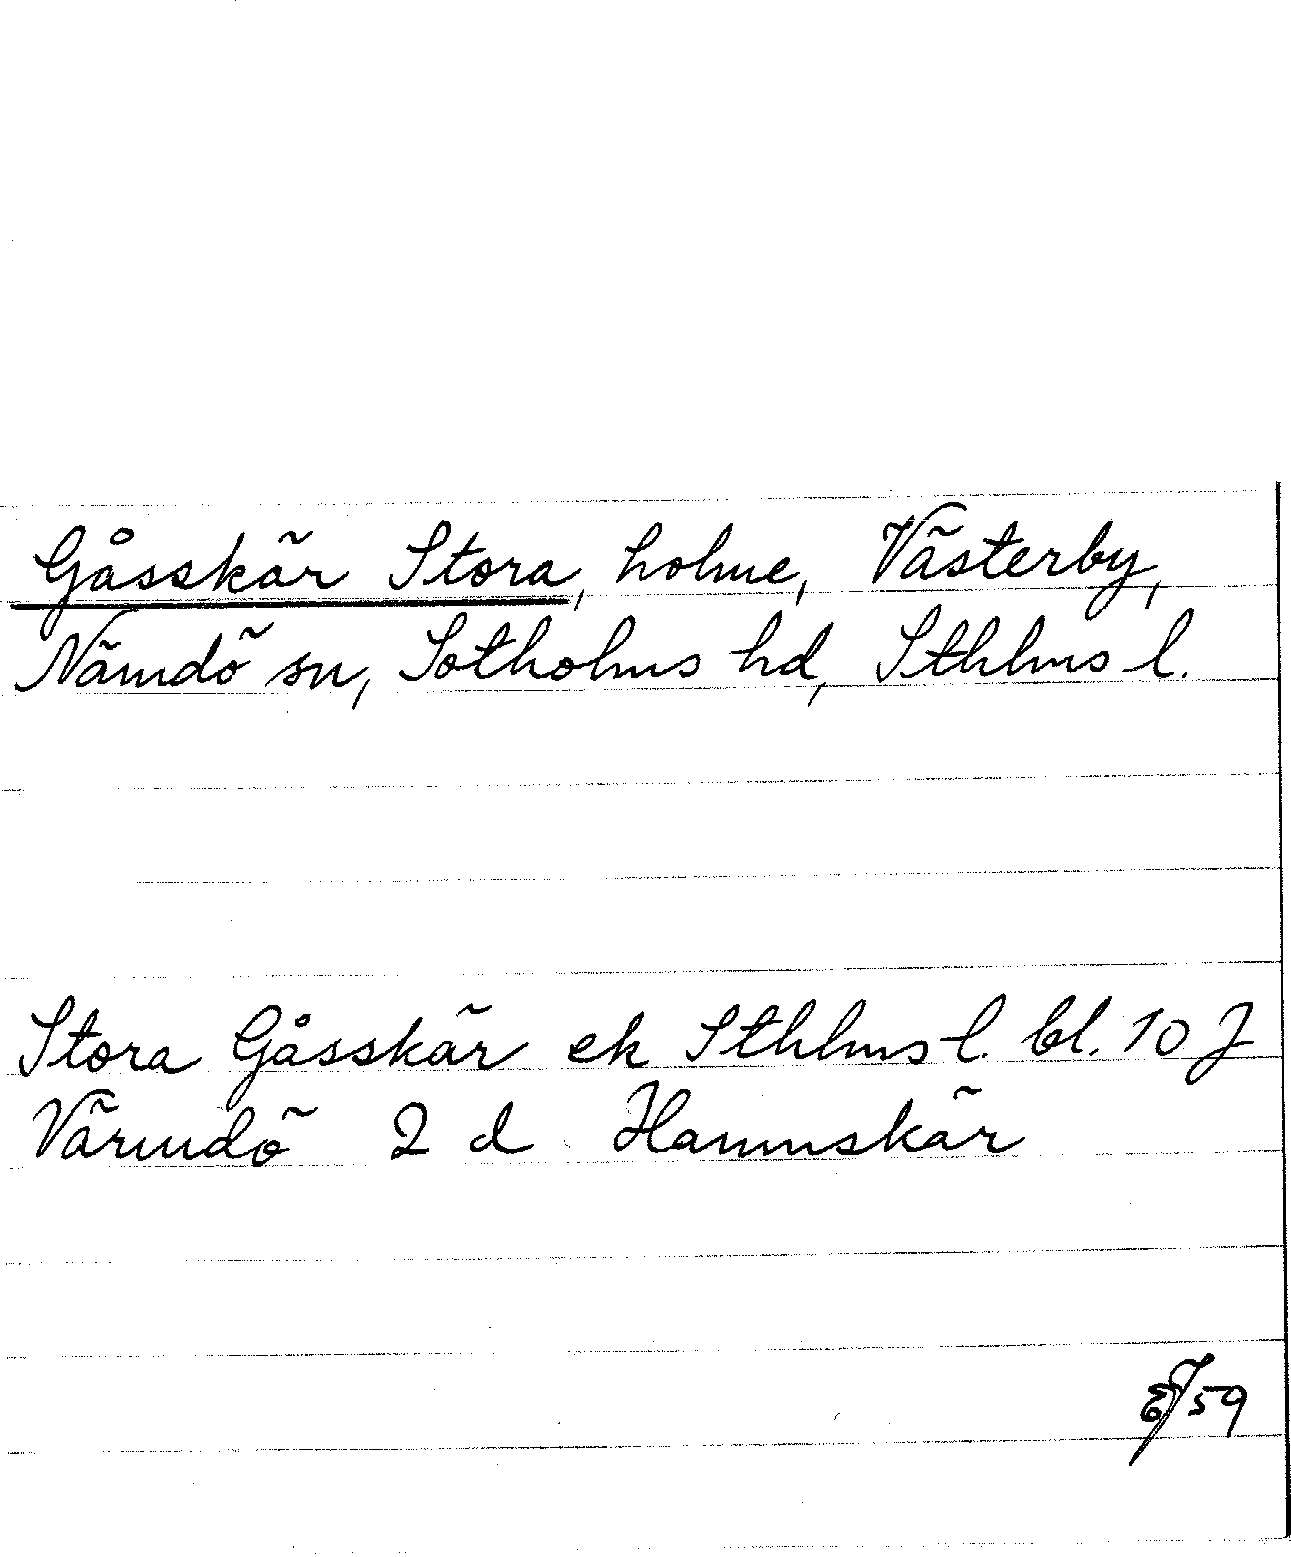 Gåsskär Stora, holme, Västerby,
Nämdö sn, Sotholms hd, Sthlms l.
Stora Gåsskär ek Sthlms l. bl. 10 J
Värmdö 2 d Hammskär
59